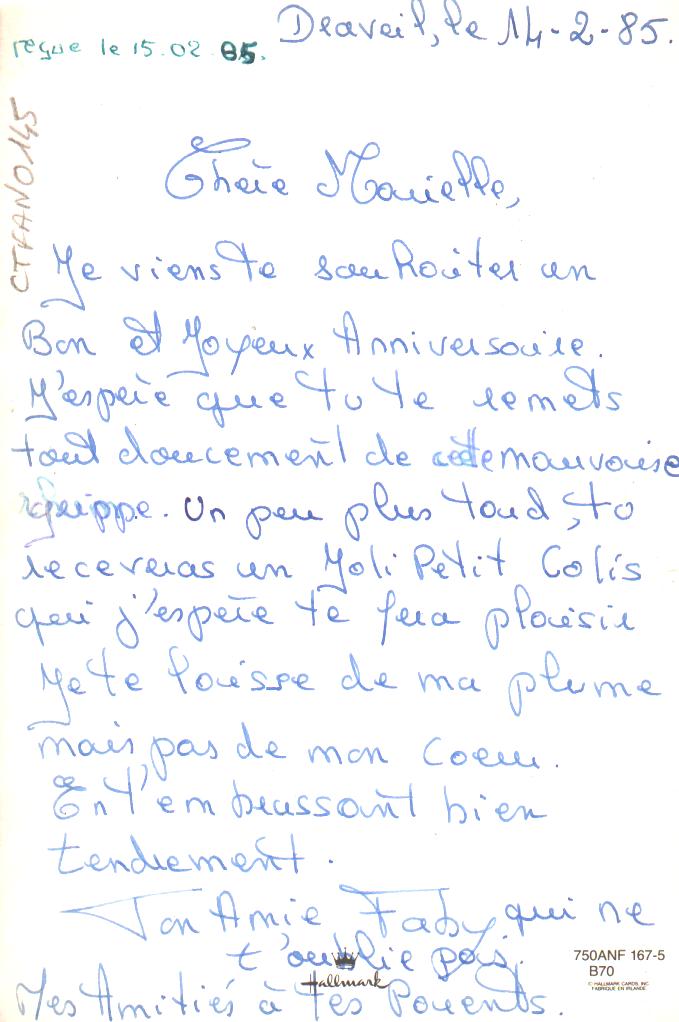 Draveil, le 14-2-85.
reçue le 15.02.85.
CTFANO145
Chère Marielle,
Je viens te souhaiter un
Bon et Joyeux Anniversaire.
J'espère que tu te remets
tout doucement de cette mauvaise
grippe. Un peu plus tard, tu
receveras un Joli Petit Colis
qui j'espère te fera plaisir
Je te laisse de ma plume
mais pas de mon coeur.
En t'embrassant bien
tendrement.
Ton Amie Faby qui ne
t'oublie pas.
Mes Amitiés à tes Parents.
Hallmark
750ANF 167-5
B70
© HALLMARK CARDS, INC.
FABRIQUÉ EN IRLANDE.